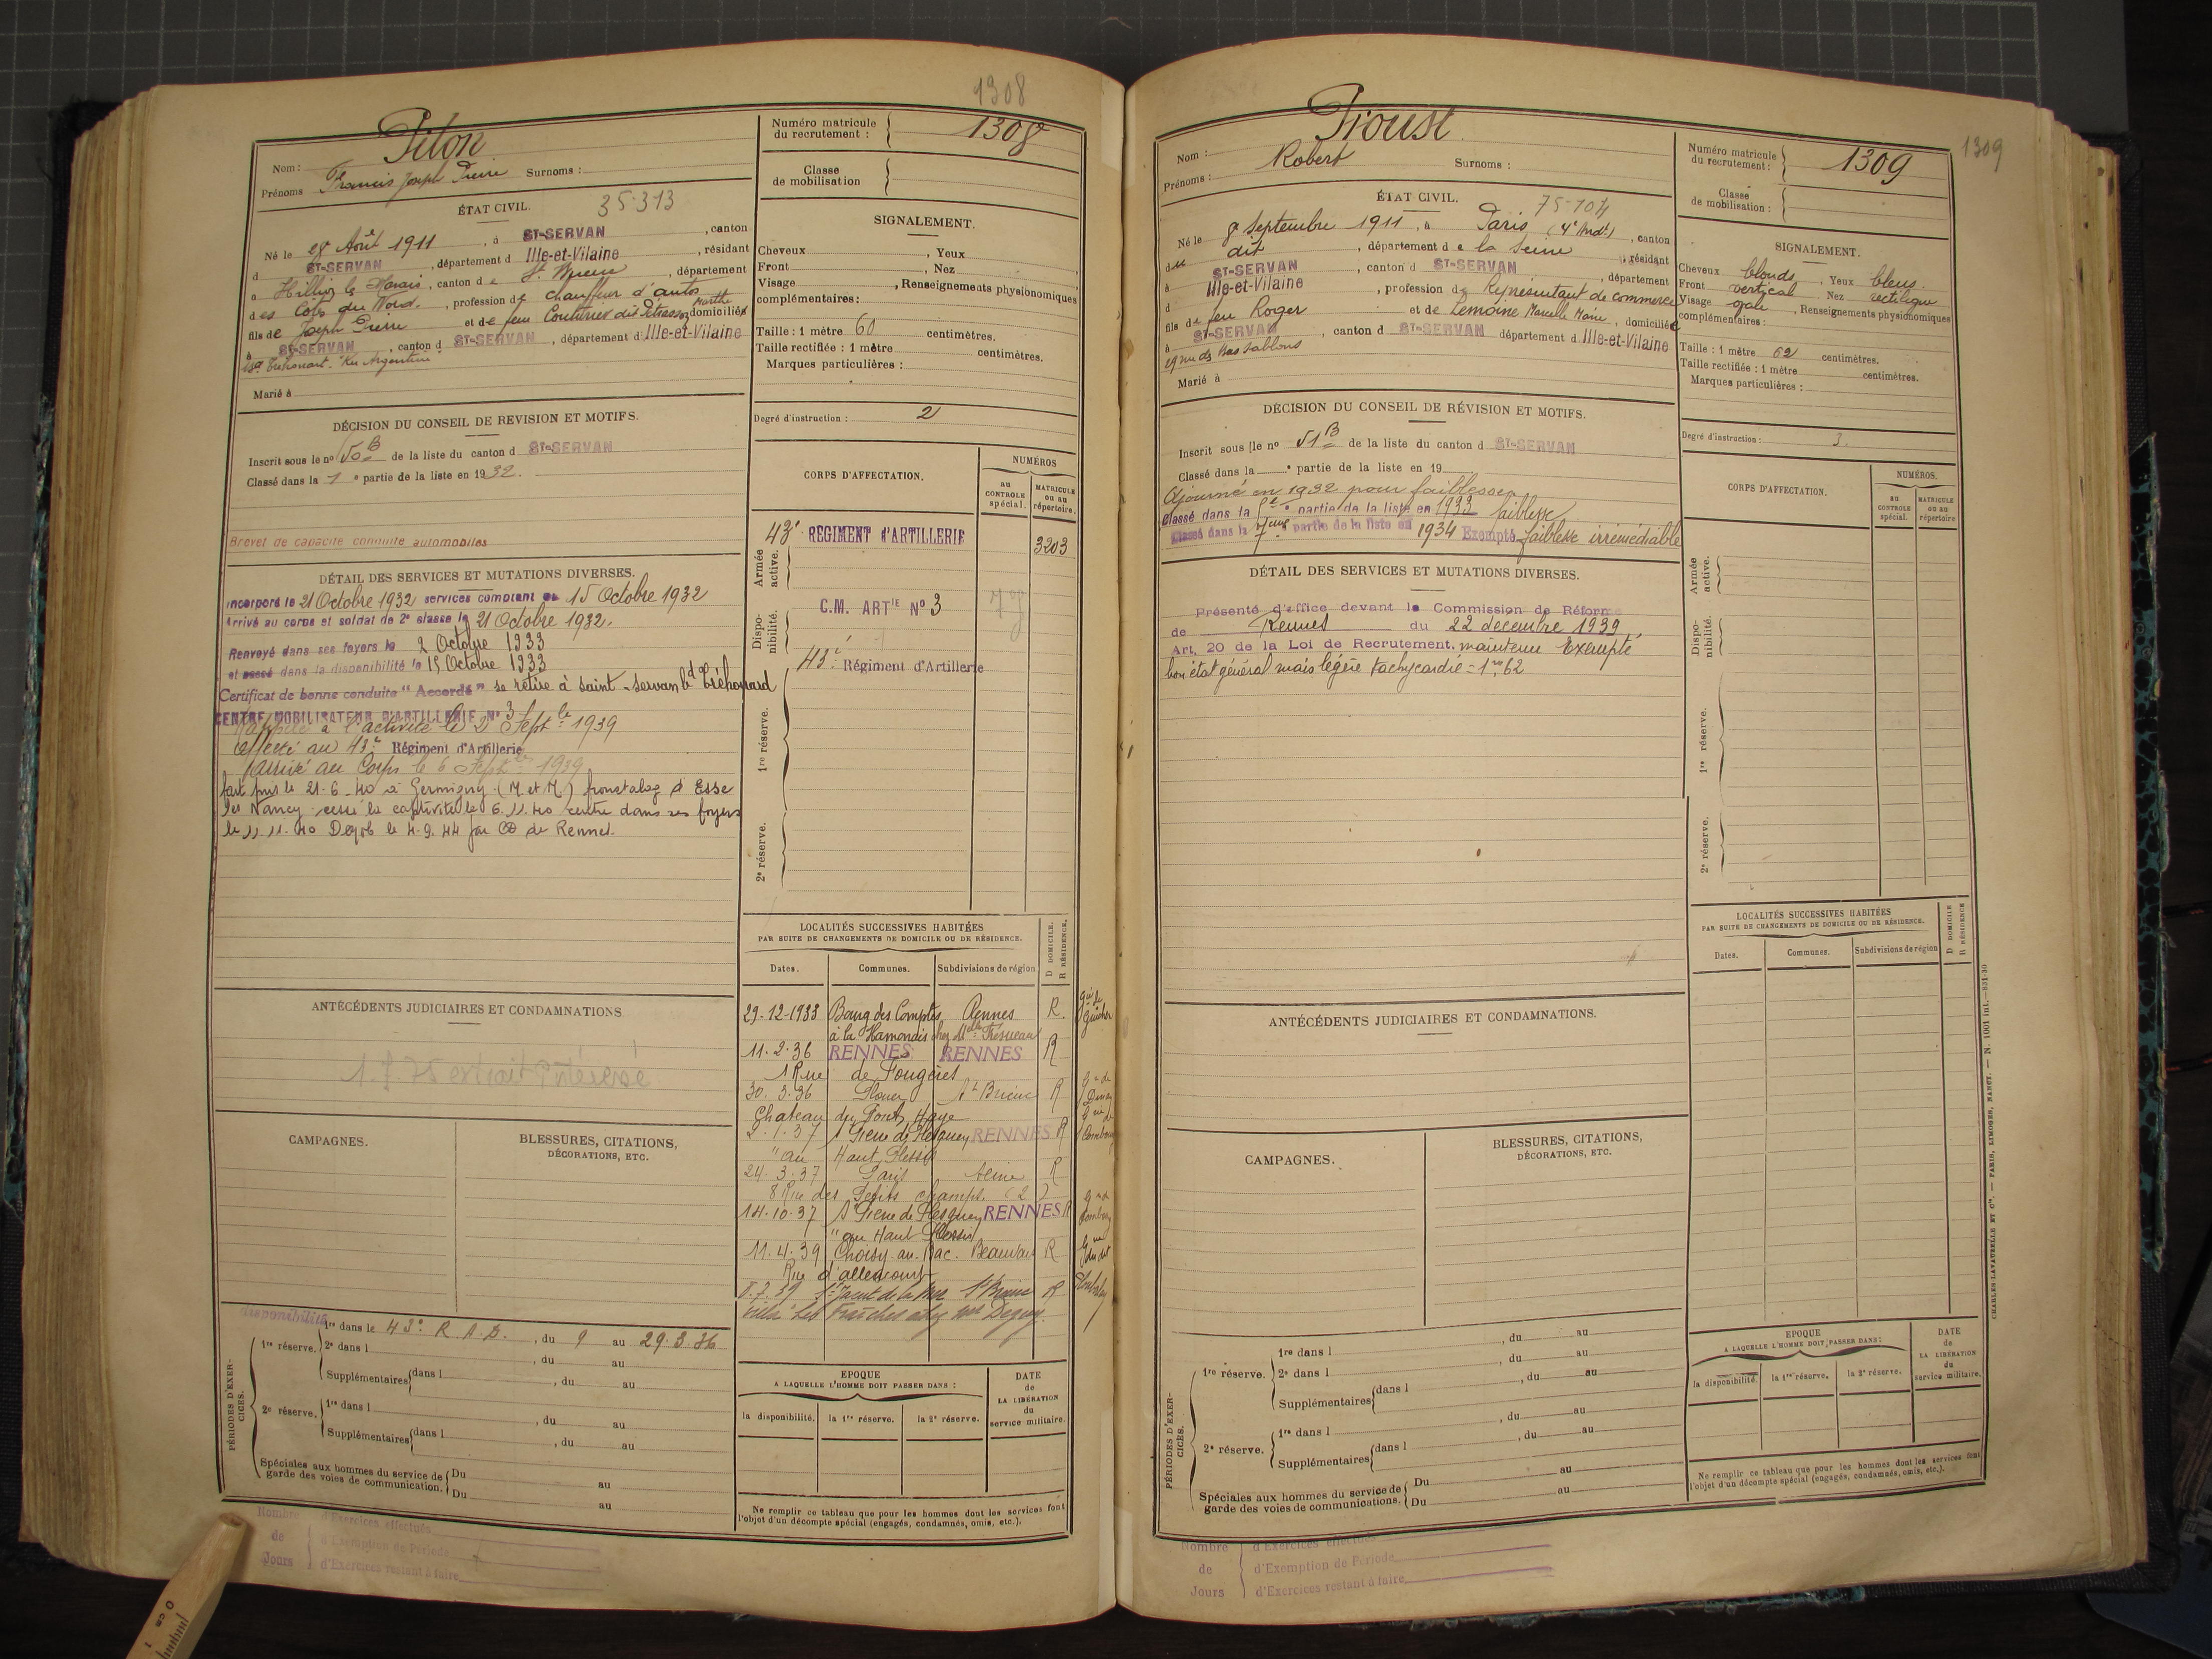 1308
Piton
Nom :
Prénoms Francis Joseph Pierre Surnoms :
Numéro matricule du recrutement : 1308
Classe de mobilisation
ÉTAT CIVIL. 35-313
Né le 28 Août 1911, à ST-SERVAN, canton
d ST-SERVAN, département d Ille-et-Vilaine, résidant
à Hillion le Marais, canton de St. Brieuc, département
des Côtes du Nord, profession de chauffeur d'autos
fils de Joseph Pierre et de feue Couturier dit Marthe domiciliés
à ST-SERVAN, canton d ST-SERVAN, département d Ille-et-Vilaine
Bd Tréhouart "Ker Argentine"
Marié à
SIGNALEMENT.
Cheveux, Yeux
Front, Nez
Visage, Renseignements physionomiques
complémentaires :
Taille : 1 mètre 60 centimètres.
Taille rectifiée : 1 mètre centimètres.
Marques particulières :
Degré d'instruction : 2
DÉCISION DU CONSEIL DE REVISION ET MOTIFS.
Inscrit sous le nº 50 B de la liste du canton d ST-SERVAN
Classé dans la 1e partie de la liste en 1932.
Brevet de capacité conduite automobiles
DÉTAIL DES SERVICES ET MUTATIONS DIVERSES.
Incorporé le 21 Octobre 1932 services comptant du 15 Octobre 1932
Arrivé au corps et soldat de 2e classe le 21 Octobre 1932.
Renvoyé dans ses foyers le 2 Octobre 1933
et passé dans la disponibilité le 15 Octobre 1933
Certificat de bonne conduite "Accordé" se retire à Saint-Servan bd Tréhouard
CENTRE MOBILISATEUR D'ARTILLERIE Nº 3
Rappelé à l'activité le 2 Septbre 1939
affecté au 43e Régiment d'Artillerie
Arrivé au Corps le 6 Septbre 1939
fait pris le 21-6-40 à Germigny (M et M) fronstalag d'Esse
les Nancy cessé la captivité le 6.11.40 rentre dans ses foyers
le 11.11.40 Démob le 4-9.44 par CD de Rennes.
CORPS D'AFFECTATION.
NUMÉROS
AU CONTROLE spécial.
MATRICULE OU AU répertoire.
Armée active.
43e REGIMENT d'ARTILLERIE 3203
Disponibilité.
C.M. ARTIE Nº 3
1re réserve.
43e Régiment d'Artillerie
2e réserve.
LOCALITÉS SUCCESSIVES HABITÉES
PAR SUITE DE CHANGEMENTS DE DOMICILE OU DE RÉSIDENCE.
Dates. Communes. Subdivisions de région D DOMICILE. R RÉSIDENCE.
29-12-1933 Bourg des Comptes Rennes R.
à la Hamonais chez Mlle
11.2.36 RENNES RENNES R
1 Rue de Fougères
30.3.36 Plouer St Brieuc R
Chateau du Pont Haye
2.1.37 St Pierre de Plesguen RENNES R
"au Haut Plessis
24.3.37 Paris Seine R
8 Rue des Petits champs (2)
14.10.37 St Pierre de Plesguen RENNES R
"au Haut Plessis
11.4.39 Choisy-au-Bac. Beauvais R
Rue d'allencourt
8.7.39 St Jacut de la Mer St Brieuc R
ANTÉCÉDENTS JUDICIAIRES ET CONDAMNATIONS.
CAMPAGNES.
BLESSURES, CITATIONS, DÉCORATIONS, ETC.
PÉRIODES D'EXERCICES.
disponibilité
1re réserve.
1re dans le 43e R.A.D., du 9 au 29.3.36
2e dans l, du au
Supplémentaires dans l, du au
2e réserve.
1re dans l, du au
Supplémentaires dans l, du au
Spéciales aux hommes du service de garde des voies de communication.
Du au
Du au
EPOQUE
A LAQUELLE L'HOMME DOIT PASSER DANS :
la disponibilité. la 1re réserve. la 2e réserve.
DATE de LA LIBÉRATION du service militaire.
Ne remplir ce tableau que pour les hommes dont les services font
l'objet d'un décompte spécial (engagés, condamnés, omis, etc.).
Nombre de Jours
d'Exercices effectués
d'Exemption de Période
d'Exercices restant à faire
1309
Proust
Nom :
Prénoms : Robert Surnoms :
Numéro matricule du recrutement : 1309
Classe de mobilisation :
ÉTAT CIVIL. 75-104
Né le 8 Septembre 1911, à Paris (4e Arrdt), canton
du dit, département de la Seine, résidant
à ST-SERVAN, canton d ST-SERVAN, département
Ille-et-Vilaine, profession de Représentant de commerce
fils de feu Roger et de Lemoine Marcelle Marie, domiciliée
à ST-SERVAN, canton d ST-SERVAN département d Ille-et-Vilaine
29 rue des Bas Sablons
Marié à
SIGNALEMENT.
Cheveux blonds, Yeux bleus.
Front vertical Nez rectiligne
Visage ovale, Renseignements physionomiques
complémentaires :
Taille : 1 mètre 62 centimètres.
Taille rectifiée : 1 mètre centimètres.
Marques particulières :
Degré d'instruction : 3.
DÉCISION DU CONSEIL DE RÉVISION ET MOTIFS.
Inscrit sous le nº 51 B de la liste du canton d ST-SERVAN
Classé dans la e partie de la liste en 19
Ajourné en 1932 pour faiblesse
Classé dans la 5e partie de la liste en 1933 faiblesse
Classé dans la 7eme partie de la liste en 1934 Exempté faiblesse irrémédiable
DÉTAIL DES SERVICES ET MUTATIONS DIVERSES.
Présenté d'office devant la Commission de Réforme
de Rennes du 22 décembre 1939,
Art. 20 de la Loi de Recrutement. maintenu Exempté,
bon état général mais légère tachycardie = 1m,62
CORPS D'AFFECTATION.
NUMÉROS.
AU CONTROLE spécial.
MATRICULE OU AU répertoire
Armée active.
Disponibilité.
1re réserve.
2e réserve.
LOCALITÉS SUCCESSIVES HABITÉES
PAR SUITE DE CHANGEMENTS DE DOMICILE OU DE RÉSIDENCE.
Dates. Communes. Subdivisions de région D DOMICILE R RÉSIDENCE
ANTÉCÉDENTS JUDICIAIRES ET CONDAMNATIONS.
CAMPAGNES.
BLESSURES, CITATIONS, DÉCORATIONS, ETC.
PÉRIODES D'EXERCICES.
1re réserve.
1re dans l, du au
2e dans l, du au
Supplémentaires dans l, du au
2e réserve.
1re dans l, du au
Supplémentaires dans l, du au
Spéciales aux hommes du service de garde des voies de communications.
Du au
Du au
EPOQUE
A LAQUELLE L'HOMME DOIT PASSER DANS :
la disponibilité. la 1re réserve. la 2e réserve.
DATE de LA LIBÉRATION du service militaire.
Ne remplir ce tableau que pour les hommes dont les services font
l'objet d'un décompte spécial (engagés, condamnés, omis, etc.).
CHARLES-LAVAUZELLE ET Cie. — PARIS, LIMOGES, NANCY. — N. 1001 int.—831-30
Nombre de Jours
d'Exercices effectués
d'Exemption de Période
d'Exercices restant à faire
0 cm 1